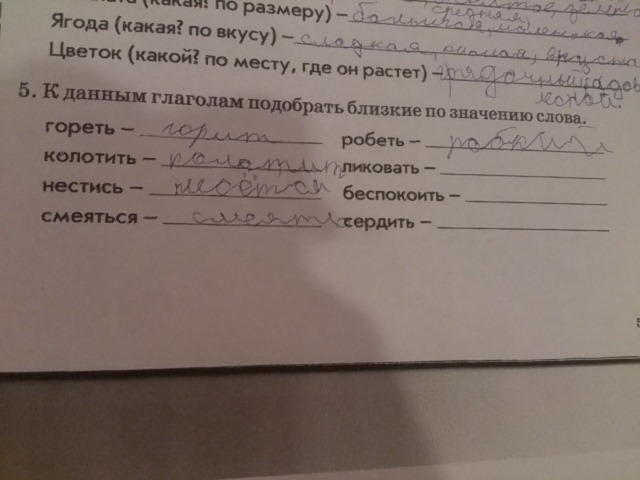 (какая? по размеру) – большая, маленькая,
средняя
Ягода (какая? по вкусу) – сладкая, кислая,
Цветок (какой? по месту, где он растет) –
лесной.
5. К данным глаголам подобрать близкие по значению слова.
гореть – горит робеть –
колотить – колотит ликовать –
нестись – несётся беспокоить –
смеяться – сердить –